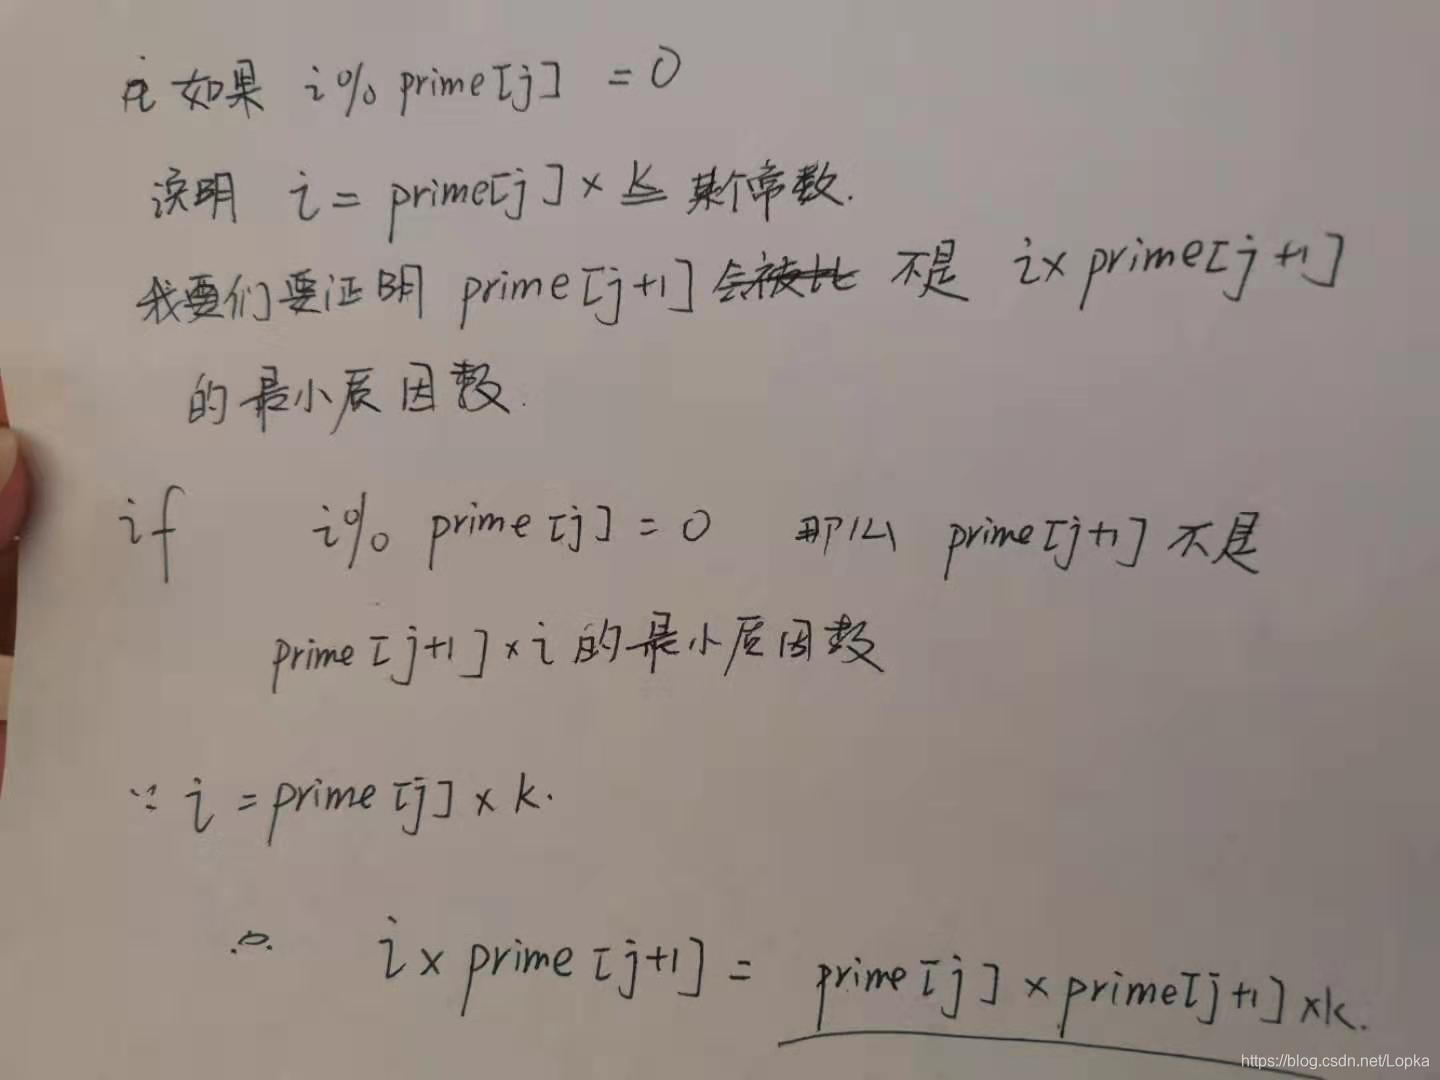 如果 i % prime[j] = 0
说明 i = prime[j] × k 某个常数.
我们要证明 prime[j+1] 不是 i× prime[j+1]
的最小质因数.
if i% prime[j] = 0 那么 prime[j+1] 不是
prime[j+1] × i 的最小质因数
∵ i = prime[j] × k.
∴ i × prime[j+1] = prime[j] × prime[j+1] ×k.
https://blog.csdn.net/Lopka